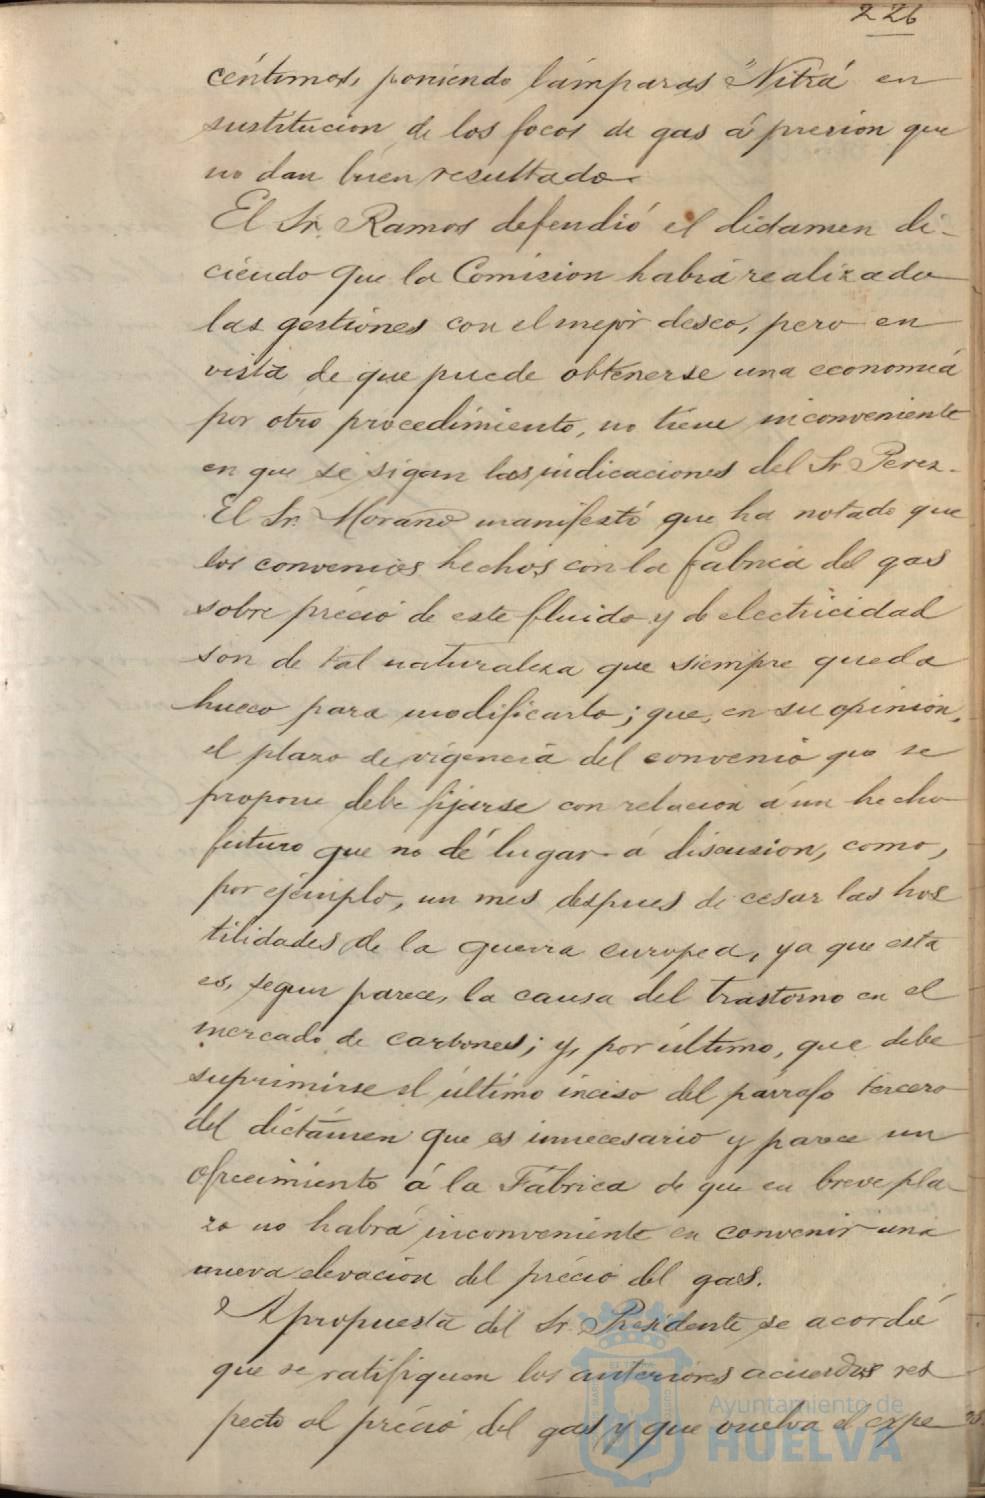 226
céntimos, poniendo lámparas "Nitrá en
sustitucion de los focos de gas á presion que
no dan buen resultado.
El Sr. Ramos defendió el dictamen di-
ciendo que la Comision habia realizado
las gestiones con el mejor deseo, pero en
vista de que puede obtenerse una economiá
por otro procedimiento, no tiene inconveniente
en que se sigan las indicaciones del Sr. Perez.
El Sr. Morano manifestó que ha notado que
los convenios hechos con la fabrica del gas
sobre precio de este fluido y de electricidad
son de tal naturaleza que siempre queda
hueco para modificarlo; que, en su opinion,
el plazo de vigencia del convenio que se
propone debe fijarse con relacion á un hecho
futuro que no dé lugar á discusion, como,
por ejemplo, un mes despues de cesar las hos
tilidades de la guerra europea, ya que esta
es, segun parece, la causa del trastorno en el
mercado de carbones; y, por último, que debe
suprimirse el último inciso del párrafo tercero
del dictámen que es innecesario y parece un
ofrecimiento á la Fábrica de que en breve pla-
zo no habrá inconveniente en convenir una
nueva elevacion del precio del gas.
A propuesta del Sr. Presidente se acordó
que se ratifiquen los anteriores acuerdos res
pecto al precio del gas y que vuelva el expe
Ayuntamiento de
HUELVA